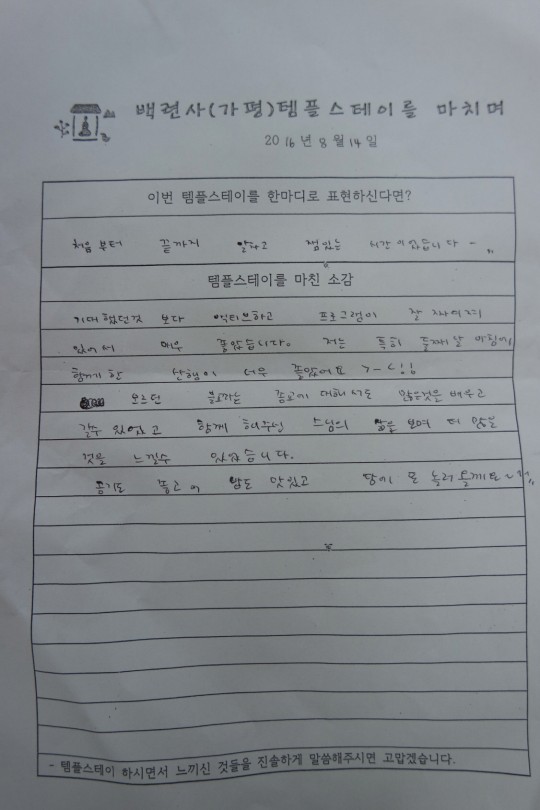 백련사(가평)템플스테이를 마치며
2016년 8월 14일
이번 템플스테이를 한마디로 표현하신다면?
처음부터 끝까지 알차고 잼있는 시간이었습니다 ~ ,,
템플스테이를 마친 소감
기대했던것 보다 액티브하고 프로그램이 잘 짜여져
있어서 매우 좋았습니다. 저는 특히 둘째날 아침에
함께한 산행이 너무 좋았어요 >-<!!
모르던 불교라는 종교에 대해서도 많은것을 배우고
갈수 있었고 함께 해주신 스님의 보며 더 많은
것을 느낄수 있었습니다.
공기도 좋고 밥도 맛있고 담에 또 놀러올께요~
- 템플스테이 하시면서 느끼신 것들을 진솔하게 말씀해주시면 고맙겠습니다.